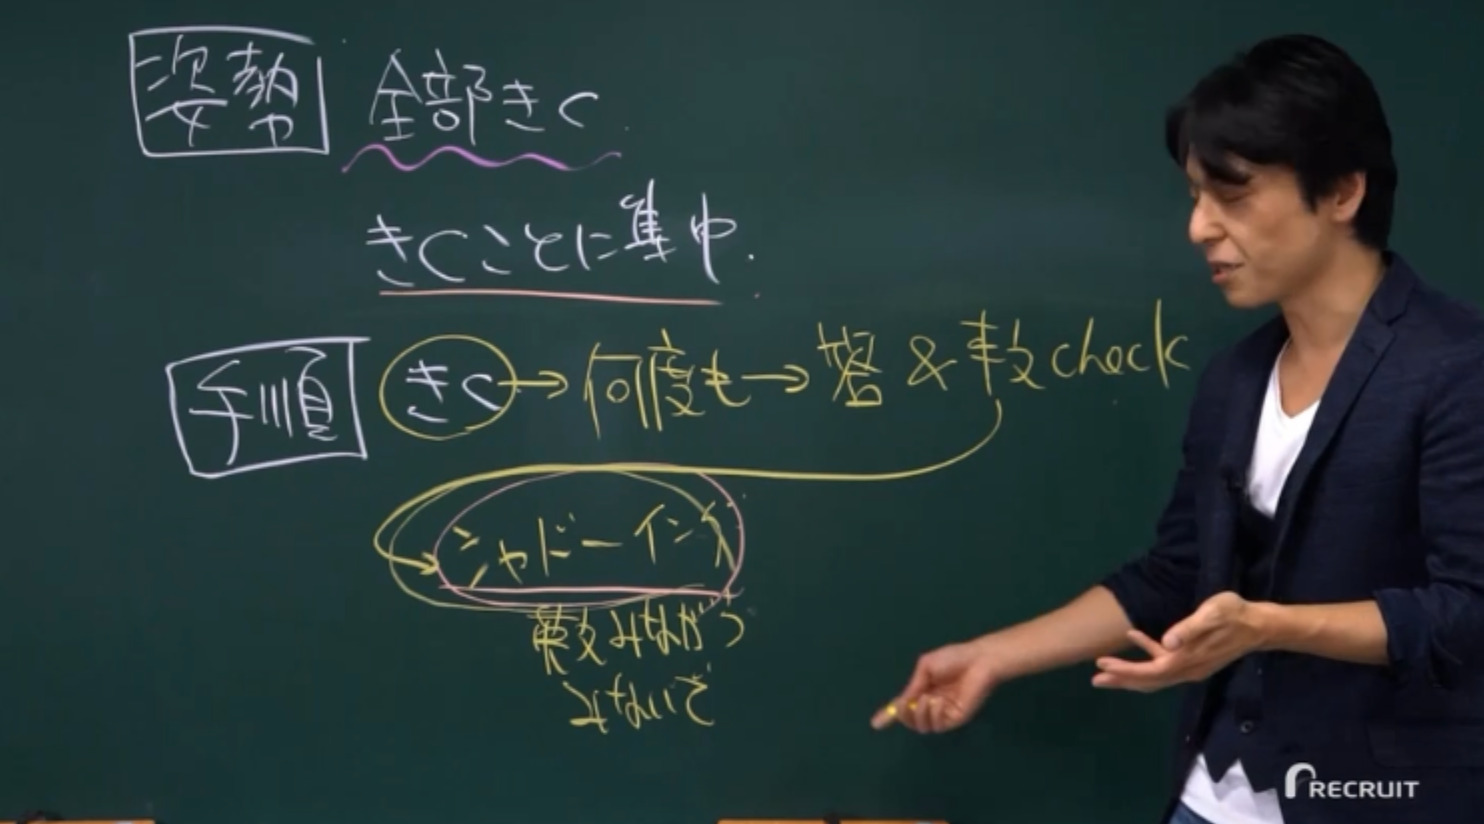 姿勢 全部きく
きくことに集中.
手順 きく→何度も→答&英文check
シャドーイング
英文みながら
みないで
RECRUIT